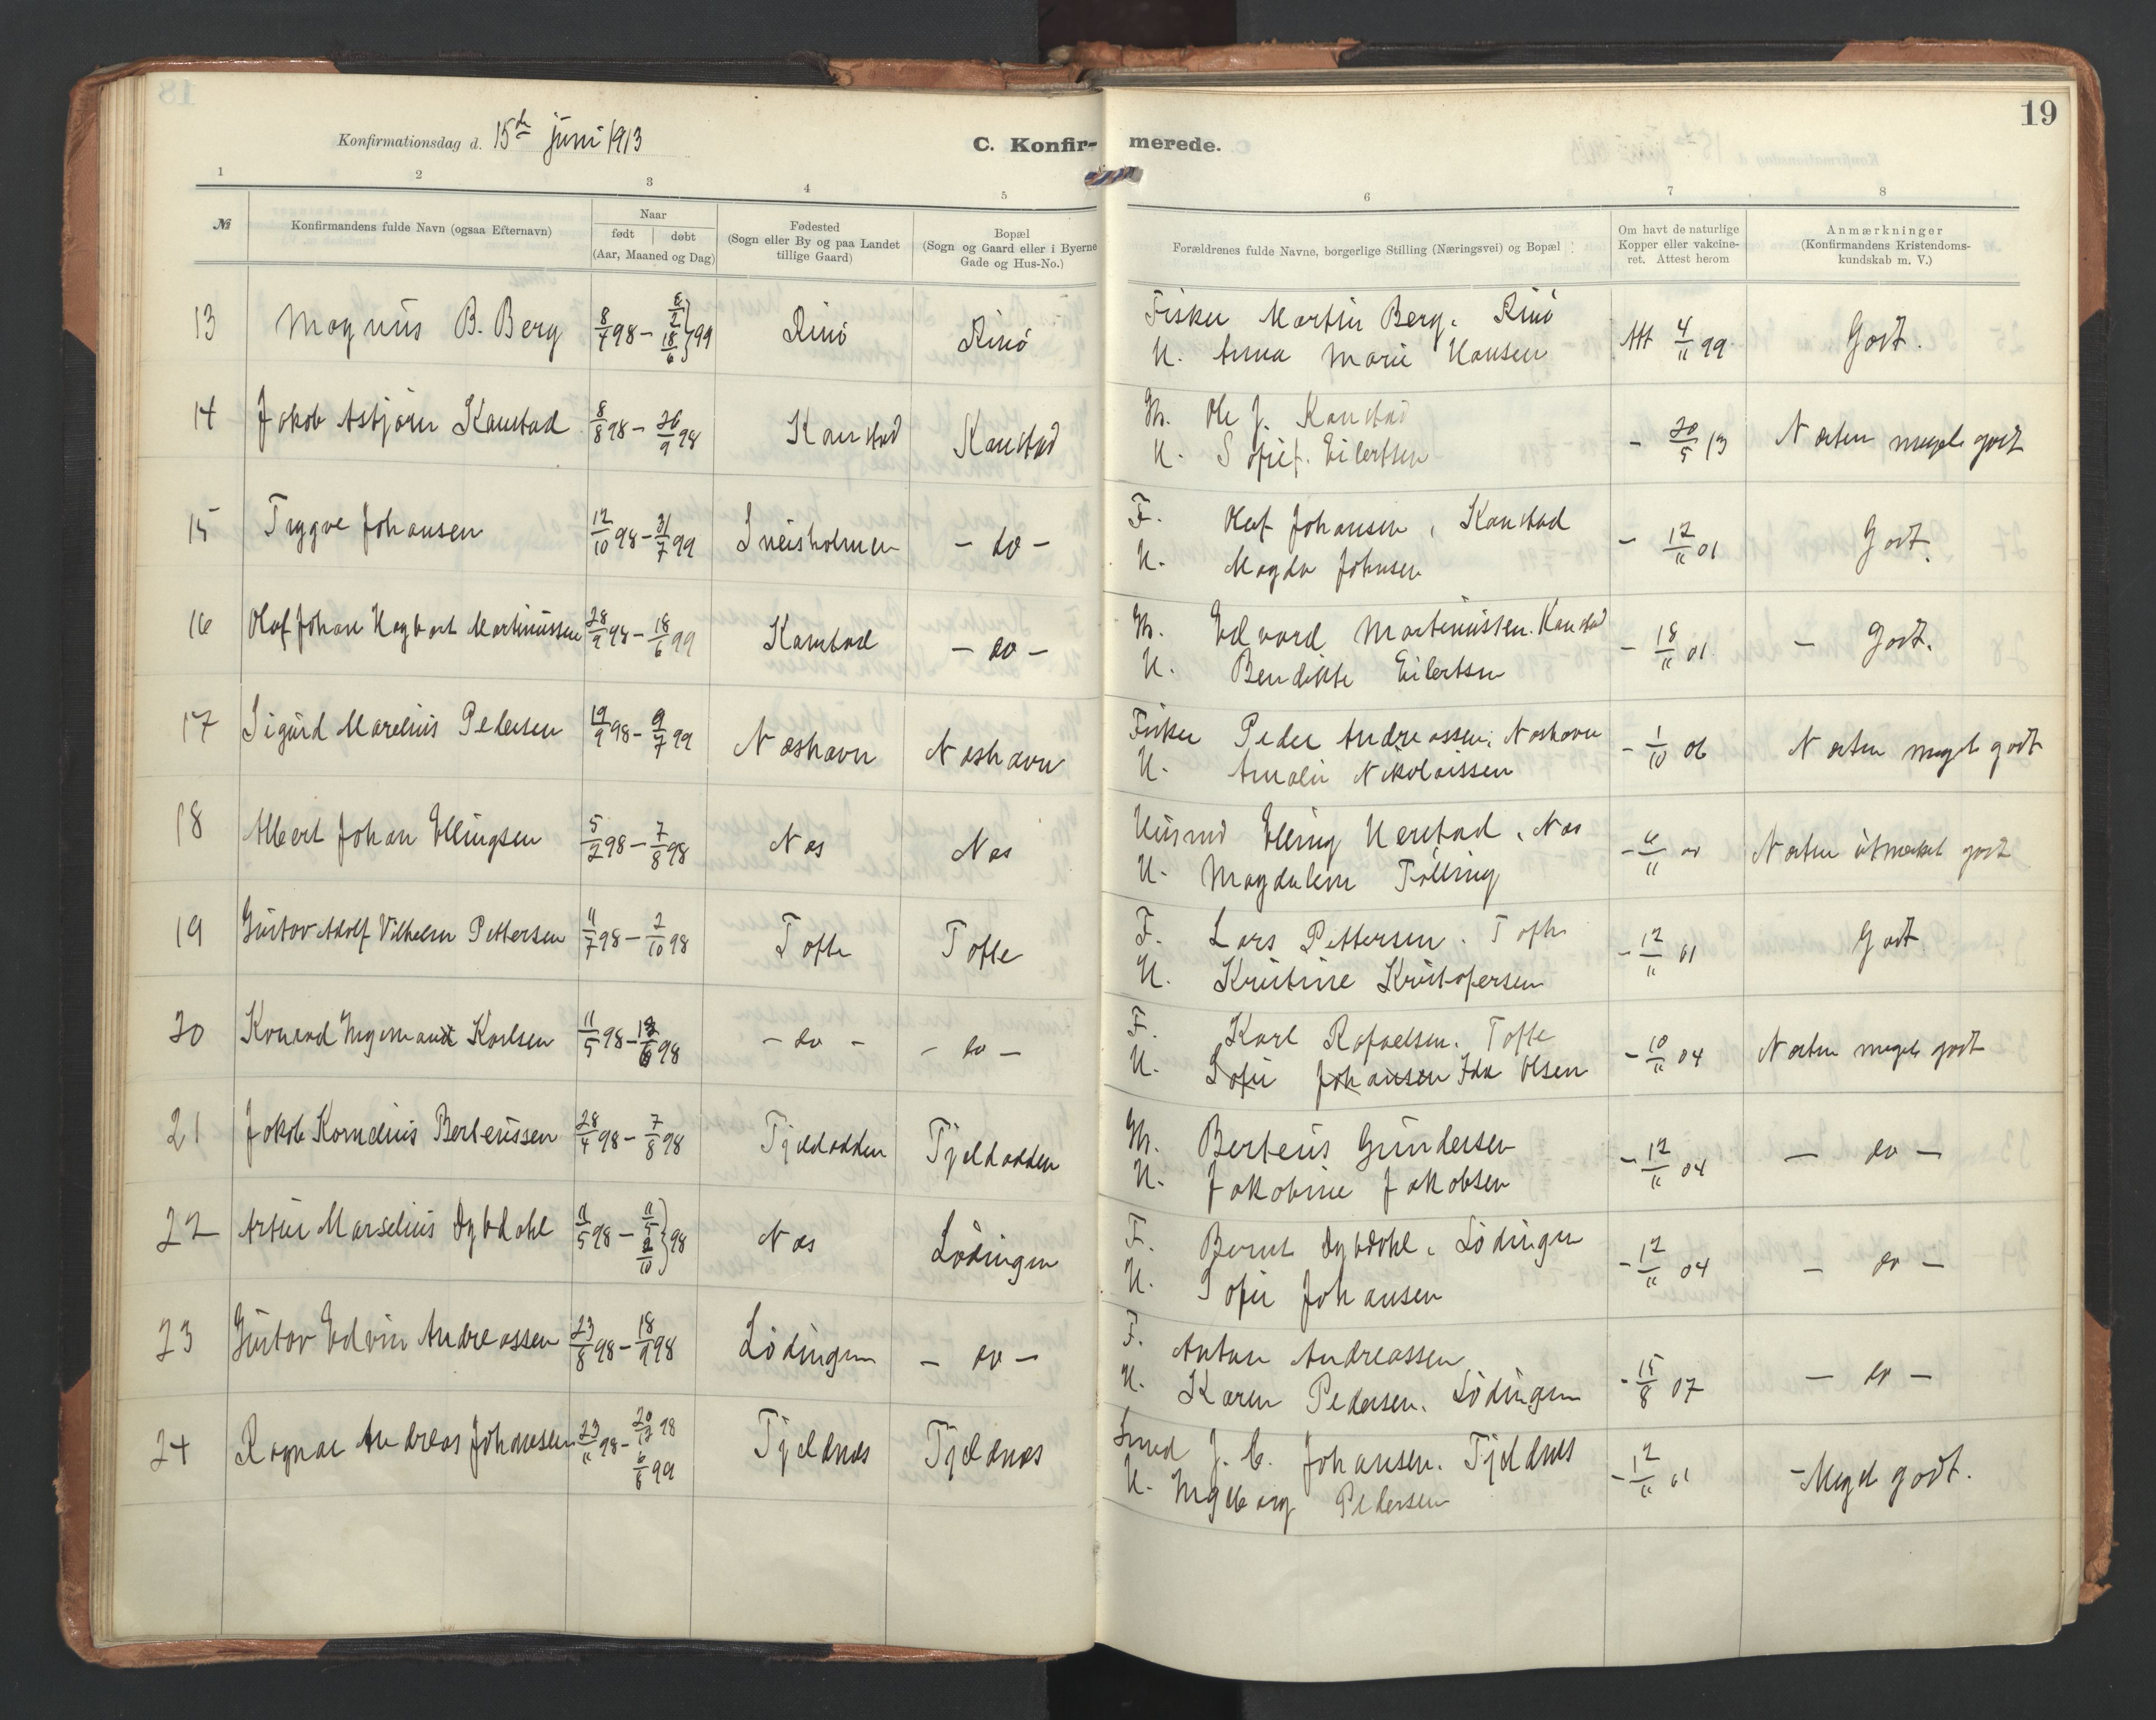 19
Konfirmationsdag d. 15de juni 1913
C. Konfir- merede.
1 2 3 4 5 6 7 8
№
Konfirmandens fulde Navn (ogsaa Efternavn)
Naar
født | døbt
(Aar, Maaned og Dag)
Fødested
(Sogn eller By og paa Landet
tillige Gaard)
Bopæl
(Sogn og Gaard eller i Byerne
Gade og Hus-No.)
Forældrenes fulde Navne, borgerlige Stilling (Næringsvei) og Bopæl
Om havt de naturlige
Kopper eller vakcine-
ret. Attest herom
Anmærkninger
(Konfirmandens Kristendoms-
kundskab m. V.)
13 Magnus B. Berg 8/4 98 – 8/2 18/6 } 99 Rinö Rinö Fisker Martin Berg. Rinö
H. Anna Marie Hansen Att 4/11 99 Godt.
14 Jakob Asbjörn Kanstad 8/8 98 – 26/9 98 Kanstad Kanstad Gb. Ole J. Kanstad
H. Sofie f. Eilertsen - 20/5 13 Næsten meget godt
15 Trygve Johansen 12/10 98 – 31/7 99 Sneisholmen – do – F. Olaf Johansen, Kanstad
H. Magda Johnsen – 12/11 01 Godt.
16 Olaf Johan Hagbart Martinussen 28/9 98 – 18/6 99 Kanstad – do – Gb. Edvard Martinussen. Kanstad
H. Bendikte Eilertsen – 18/11 01 – Godt.
17 Sigurd Marelius Pedersen 19/9 98 – 9/7 99 Næshavn Næshavn Fisker Peder Andreassen, Næshavn
H. Amalie Nikolaissen – 1/10 06 Næsten meget godt
18 Albert Johan Ellingsen 5/2 98 – 7/8 98 Næs Næs Husmd Elling Nerstad, Næs
H. Magdalene Tölling – 6/11 Næsten utmerket godt
19 Gustav Adolf Vilhelm Pettersen 11/7 98 – 2/10 98 Tofte Tofte F. Lars Pettersen. Tofte
H. Kristine Kristofersen – 12/11 01 Godt
20 Konrad Ingemand Karlsen 11/5 98 – 12/6 98 – do – – do – F. Karl Rafaelsen. Tofte
H. Sofie Johansen Ida Olsen – 10/11 04 Næsten meget godt
21 Jakob Kornelius Berteussen 28/4 98 – 7/8 98 Tjeldodden Tjeldodden Gb. Berteus Gundersen
H. Jakobine Jakobsen – 12/11 04 – do –
22 Artur Marselius Dybdahl 11/5 98 – 11/5 2/10 } 98 Næs Lödingen F. Bernt Dybdahl, Lödingen
H. Sofie Johansen – 12/11 04 – do –
23 Gustav Edvin Andreassen 23/8 98 – 18/9 98 Lödingen – do – F. Anton Andreassen
H. Karen Pedersen. Lödingen – 15/8 07 – do –
24 Ragnar Andreas Johansen 23/11 98 – 20/12 98 6/6 99 Tjeldnæs Tjeldnæs Smed J. C. Johansen. Tjeldnæs
H. Ingeborg Pedersen – 12/11 01 – Meget godt.